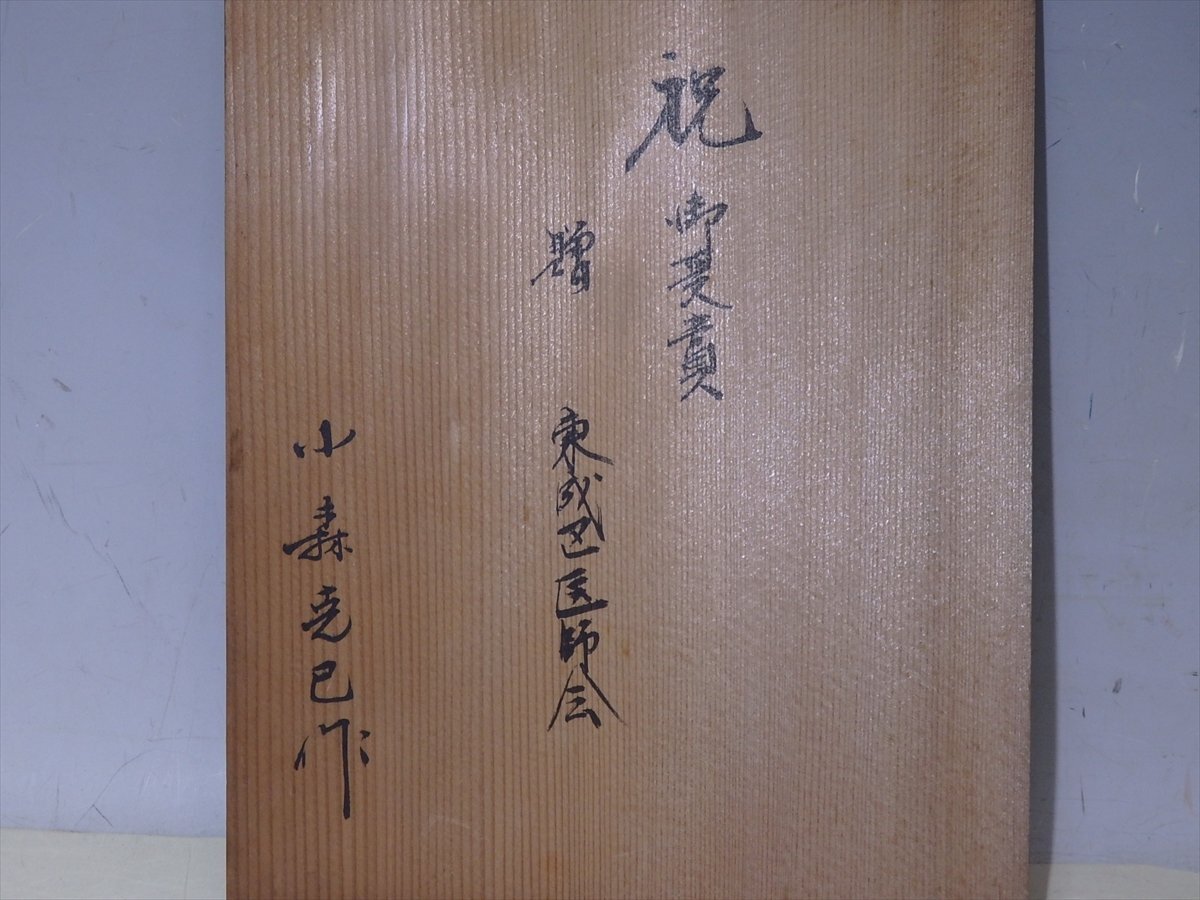 祝 御受賞
贈 東成区医師会
小森克巳作